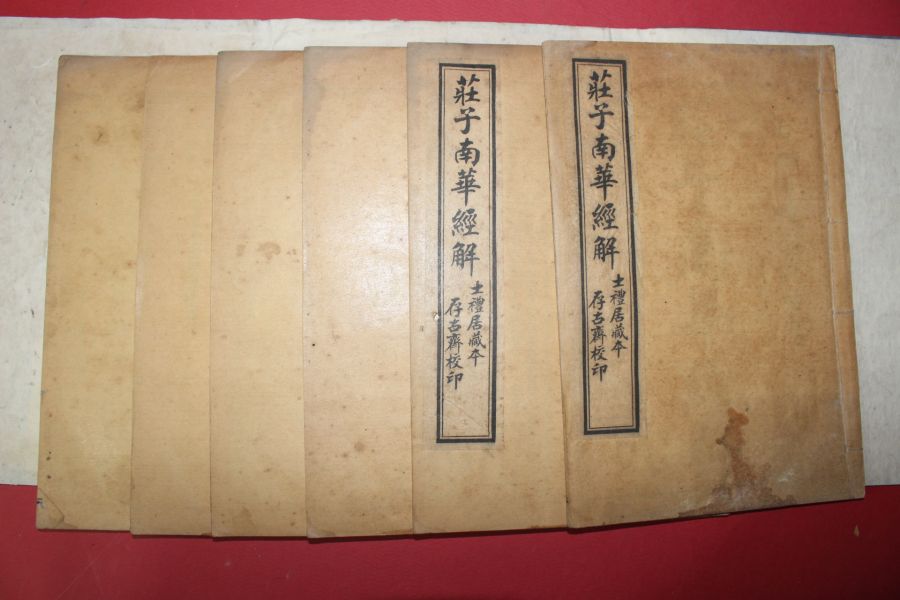 莊子南華經解
士禮居藏本
存古齋校印
莊子南華經解
士禮居藏本
存古齋校印